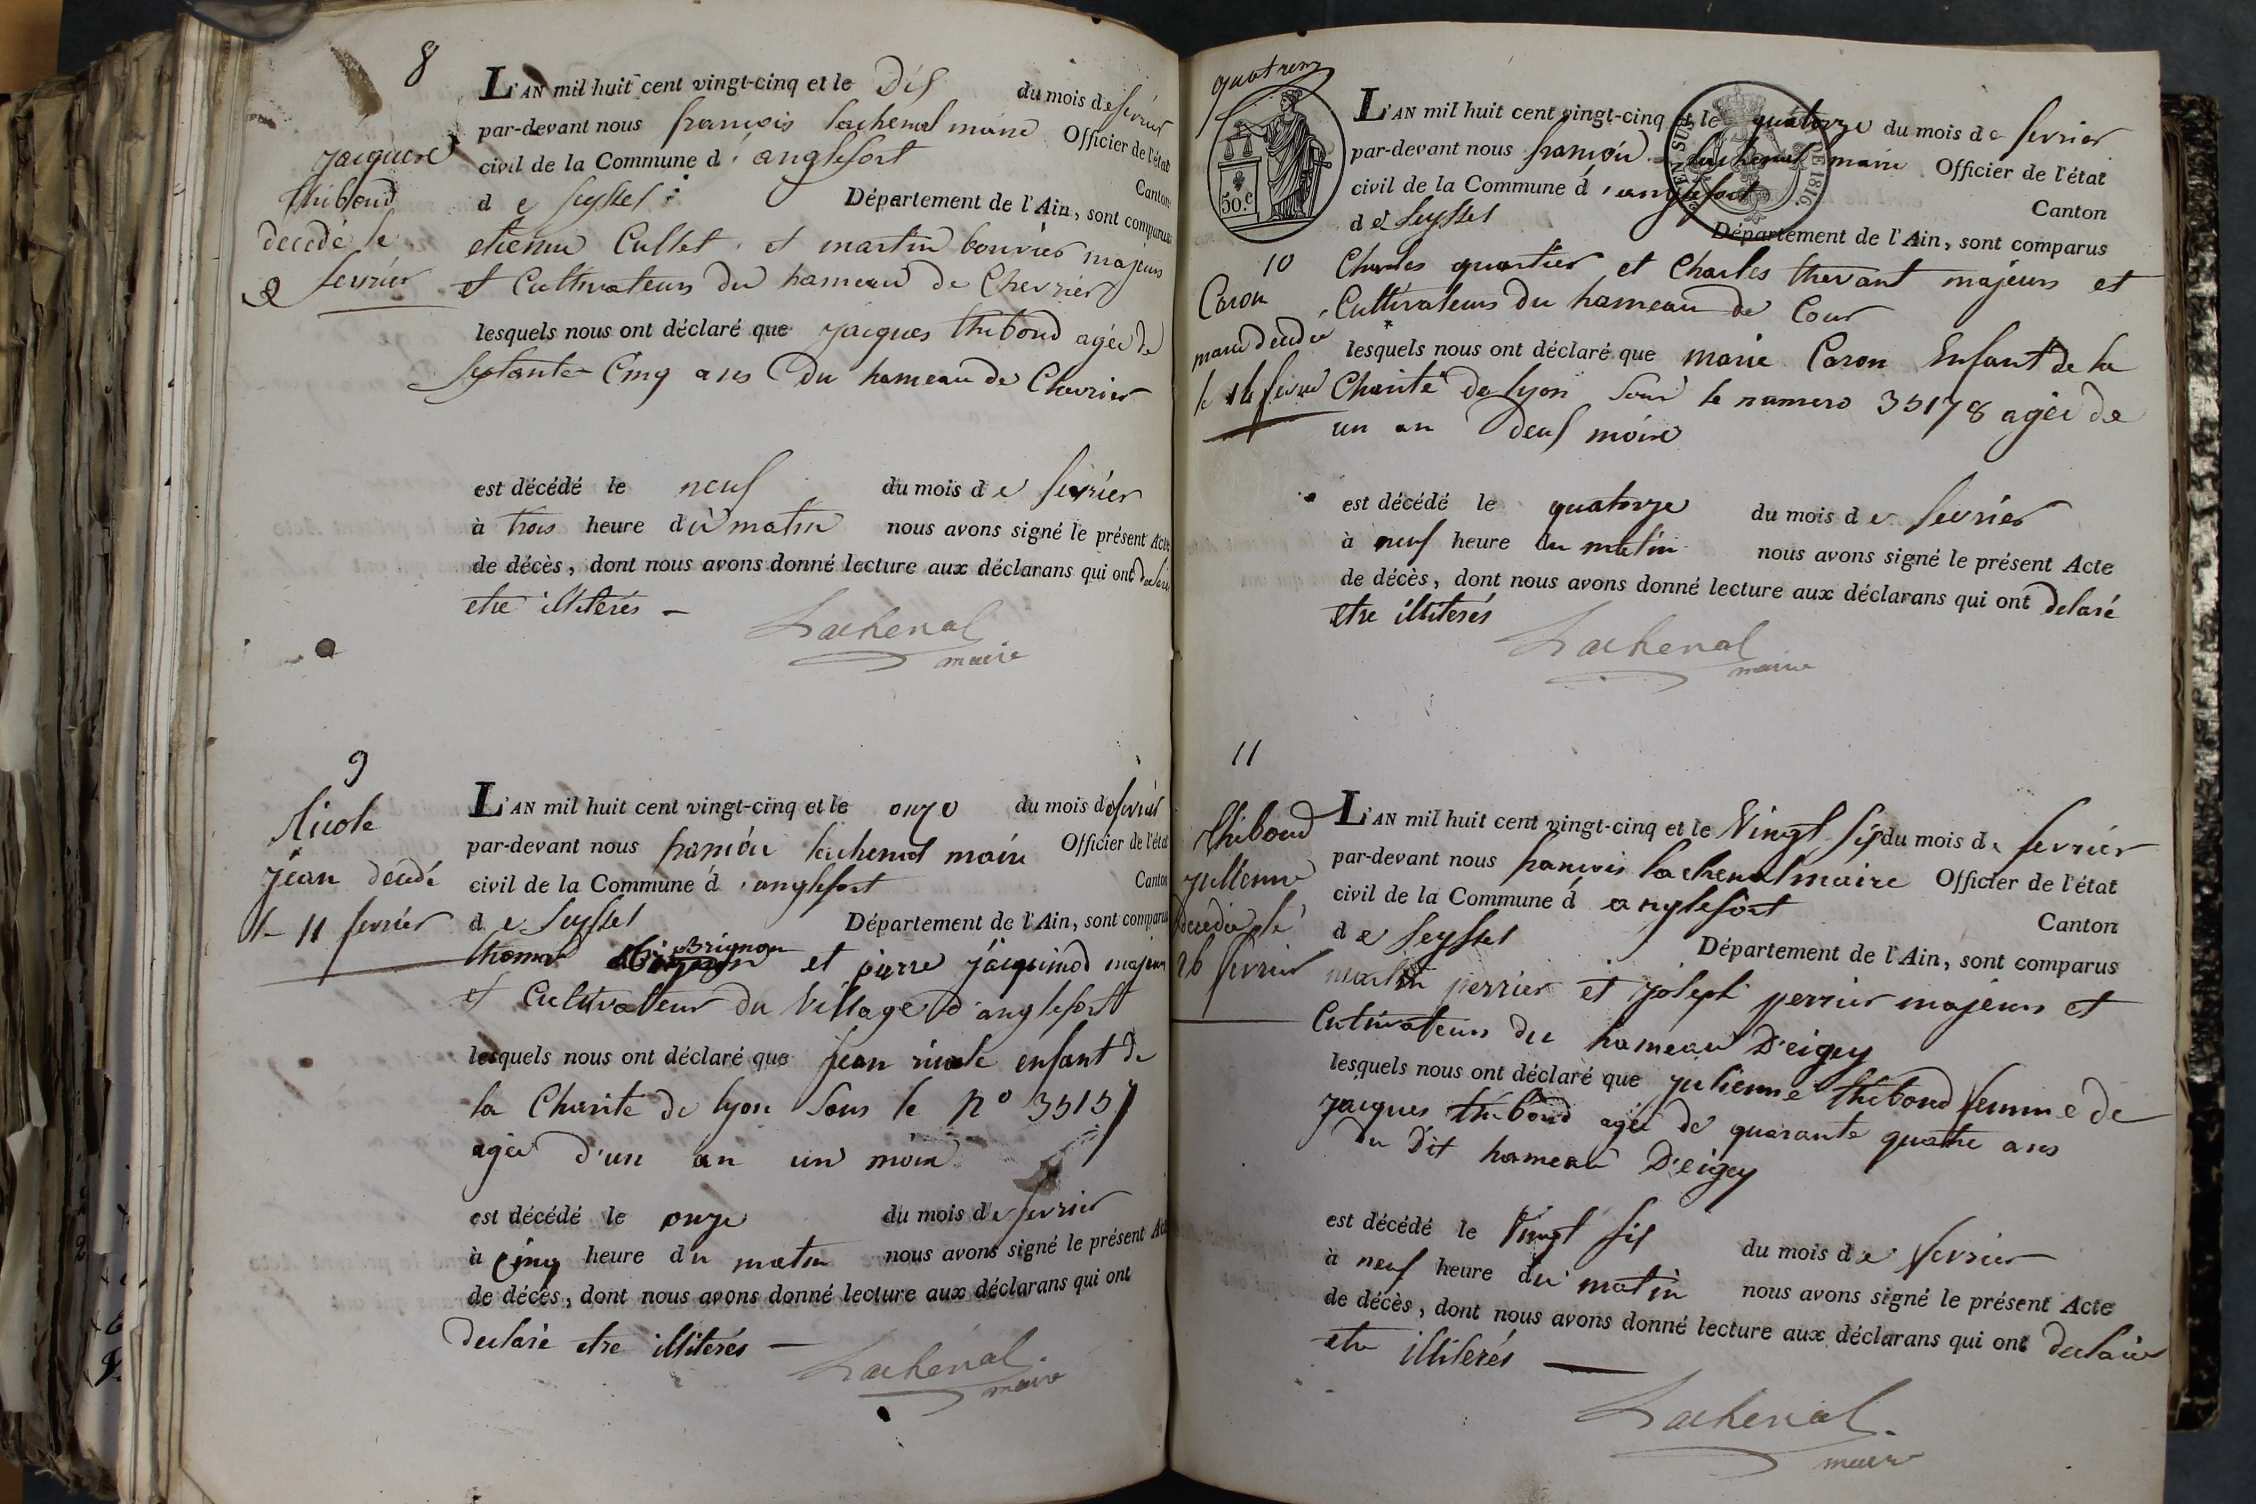 8
jacques
thiboud
décedé le
9 fevrier
L'AN mil huit cent vingt-cinq et le Dis du mois de fevrier
par-devant nous francois Lachenal maire Officier de l'état
civil de la Commune d'anglefort Canton
de Seyssel Département de l'Ain, sont comparus
etienne Cullet et martin bouvier majeurs
et Cultivateurs du hameau de Chevrier
lesquels nous ont déclaré que jacques thiboud agée de
septante Cinq ans Du hameau de Chevrier
est décédé le neuf du mois de fevrier
à trois heure du matin nous avons signé le présent Acte
de décès, dont nous avons donné lecture aux déclarans qui ont declaré
etre illiterés
Lachenal
maire
9
Nicole
jean decedé
le 11 fevrier
L'AN mil huit cent vingt-cinq et le onze du mois de fevrier
par-devant nous francois lachenal maire Officier de l'état
civil de la Commune d'anglefort Canton
de Seyssel Département de l'Ain, sont comparus
thomas Brignon et pierre jacquimod majeurs
et Cultivateur du Village d'anglefort
lesquels nous ont déclaré que jean nicole enfant de
la Charite de lyon sous le no 35157
agée d'un an un mois
est décédé le onze du mois de fevrier
à Cinq heure du matin nous avons signé le présent Acte
de décès, dont nous avons donné lecture aux déclarans qui ont
declaré etre illiterés
Lachenal
maire
50.c
1816
10
Caron
marie decedée
le 14 fevrier
L'AN mil huit cent vingt-cinq et le quatorze du mois de fevrier
par-devant nous francois lachenal maire Officier de l'état
civil de la Commune d'anglefort Canton
de Seyssel Département de l'Ain, sont comparus
Charles quartier et Charles thevant majeurs et
Cultivateurs du hameau de Cour
lesquels nous ont déclaré que marie Caron Enfant de la
Charité de lyon sous le numero 35178 agée de
un an Deus mois
est décédé le quatorze du mois de fevrier
à neuf heure du matin nous avons signé le présent Acte
de décès, dont nous avons donné lecture aux déclarans qui ont delaré
etre illiterés
Lachenal
maire
11
thiboud
jullienne
decedée le
26 fevrier
L'AN mil huit cent vingt-cinq et le Vingt sis du mois de fevrier
par-devant nous francois lachenal maire Officier de l'état
civil de la Commune d anglefort Canton
de Seyssel Département de l'Ain, sont comparus
martin perrier et joseph perrier majeurs et
Cultivateurs du hameau D'eigey
lesquels nous ont déclaré que julienne thiboud femme de
jacques thiboud agée de quarante quatre ans
du Dit hameau D'eigey
est décédé le Vingt sis du mois de fevrier
à neuf heure du matin nous avons signé le présent Acte
de décès, dont nous avons donné lecture aux déclarans qui ont declaré
etre illiterés
Lachenal
maire